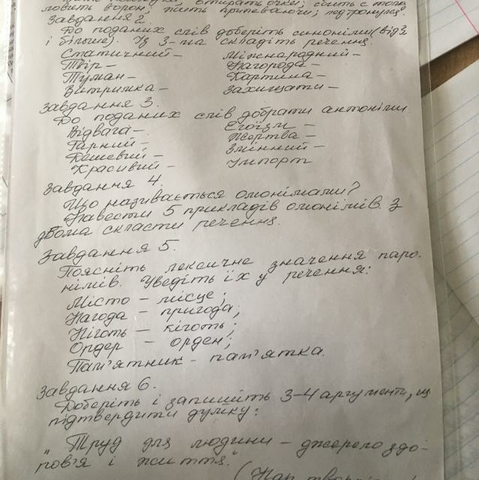 Завдання 2.
До поданих слів доберіть синоніми (від 2
і більше). Із 3-ма складіть речення.
Статичний – Міжнародний –
Твір – Нагорода –
Туман – Картина –
Витримка – Захищати –
Завдання 3.
До поданих слів добрати антоніми
Відвага – Егоїзм –
Гарний – Жертва –
Дешевий – Змінний –
Красивий – Імпорт
Завдання 4.
Що називається омонімами?
Навести 5 прикладів омонімів. З
двома скласти речення.
Завдання 5.
Поясніть лексичне значення паро-
німів. Уведіть їх у речення:
Місто – місце;
Нагода – пригода;
Ніготь – кіготь;
Ордер – орден;
Пам'ятник – пам'ятка.
Завдання 6.
Доберіть і запишіть 3-4 аргументи, щ
підтвердити думку:
"Труд для людини – джерело здо-
ров'я і життя."